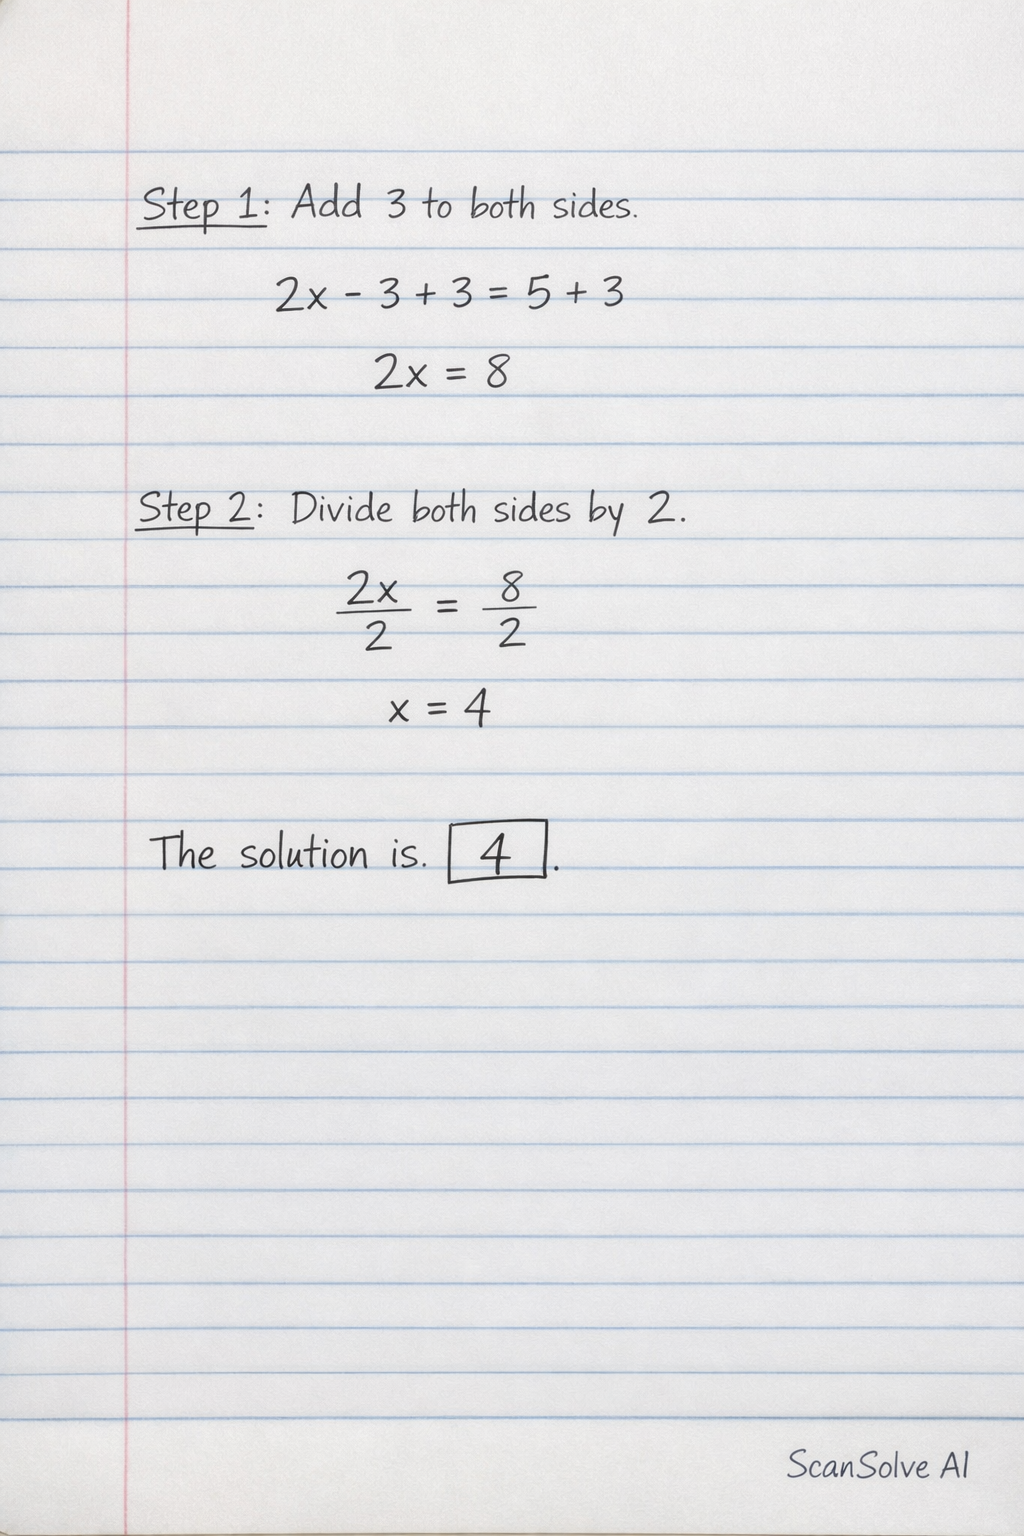 Step 1: Add 3 to both sides.
2x - 3 + 3 = 5 + 3
2x = 8
Step 2: Divide both sides by 2.
2x/2 = 8/2
x = 4
The solution is. 4.
ScanSolve AI